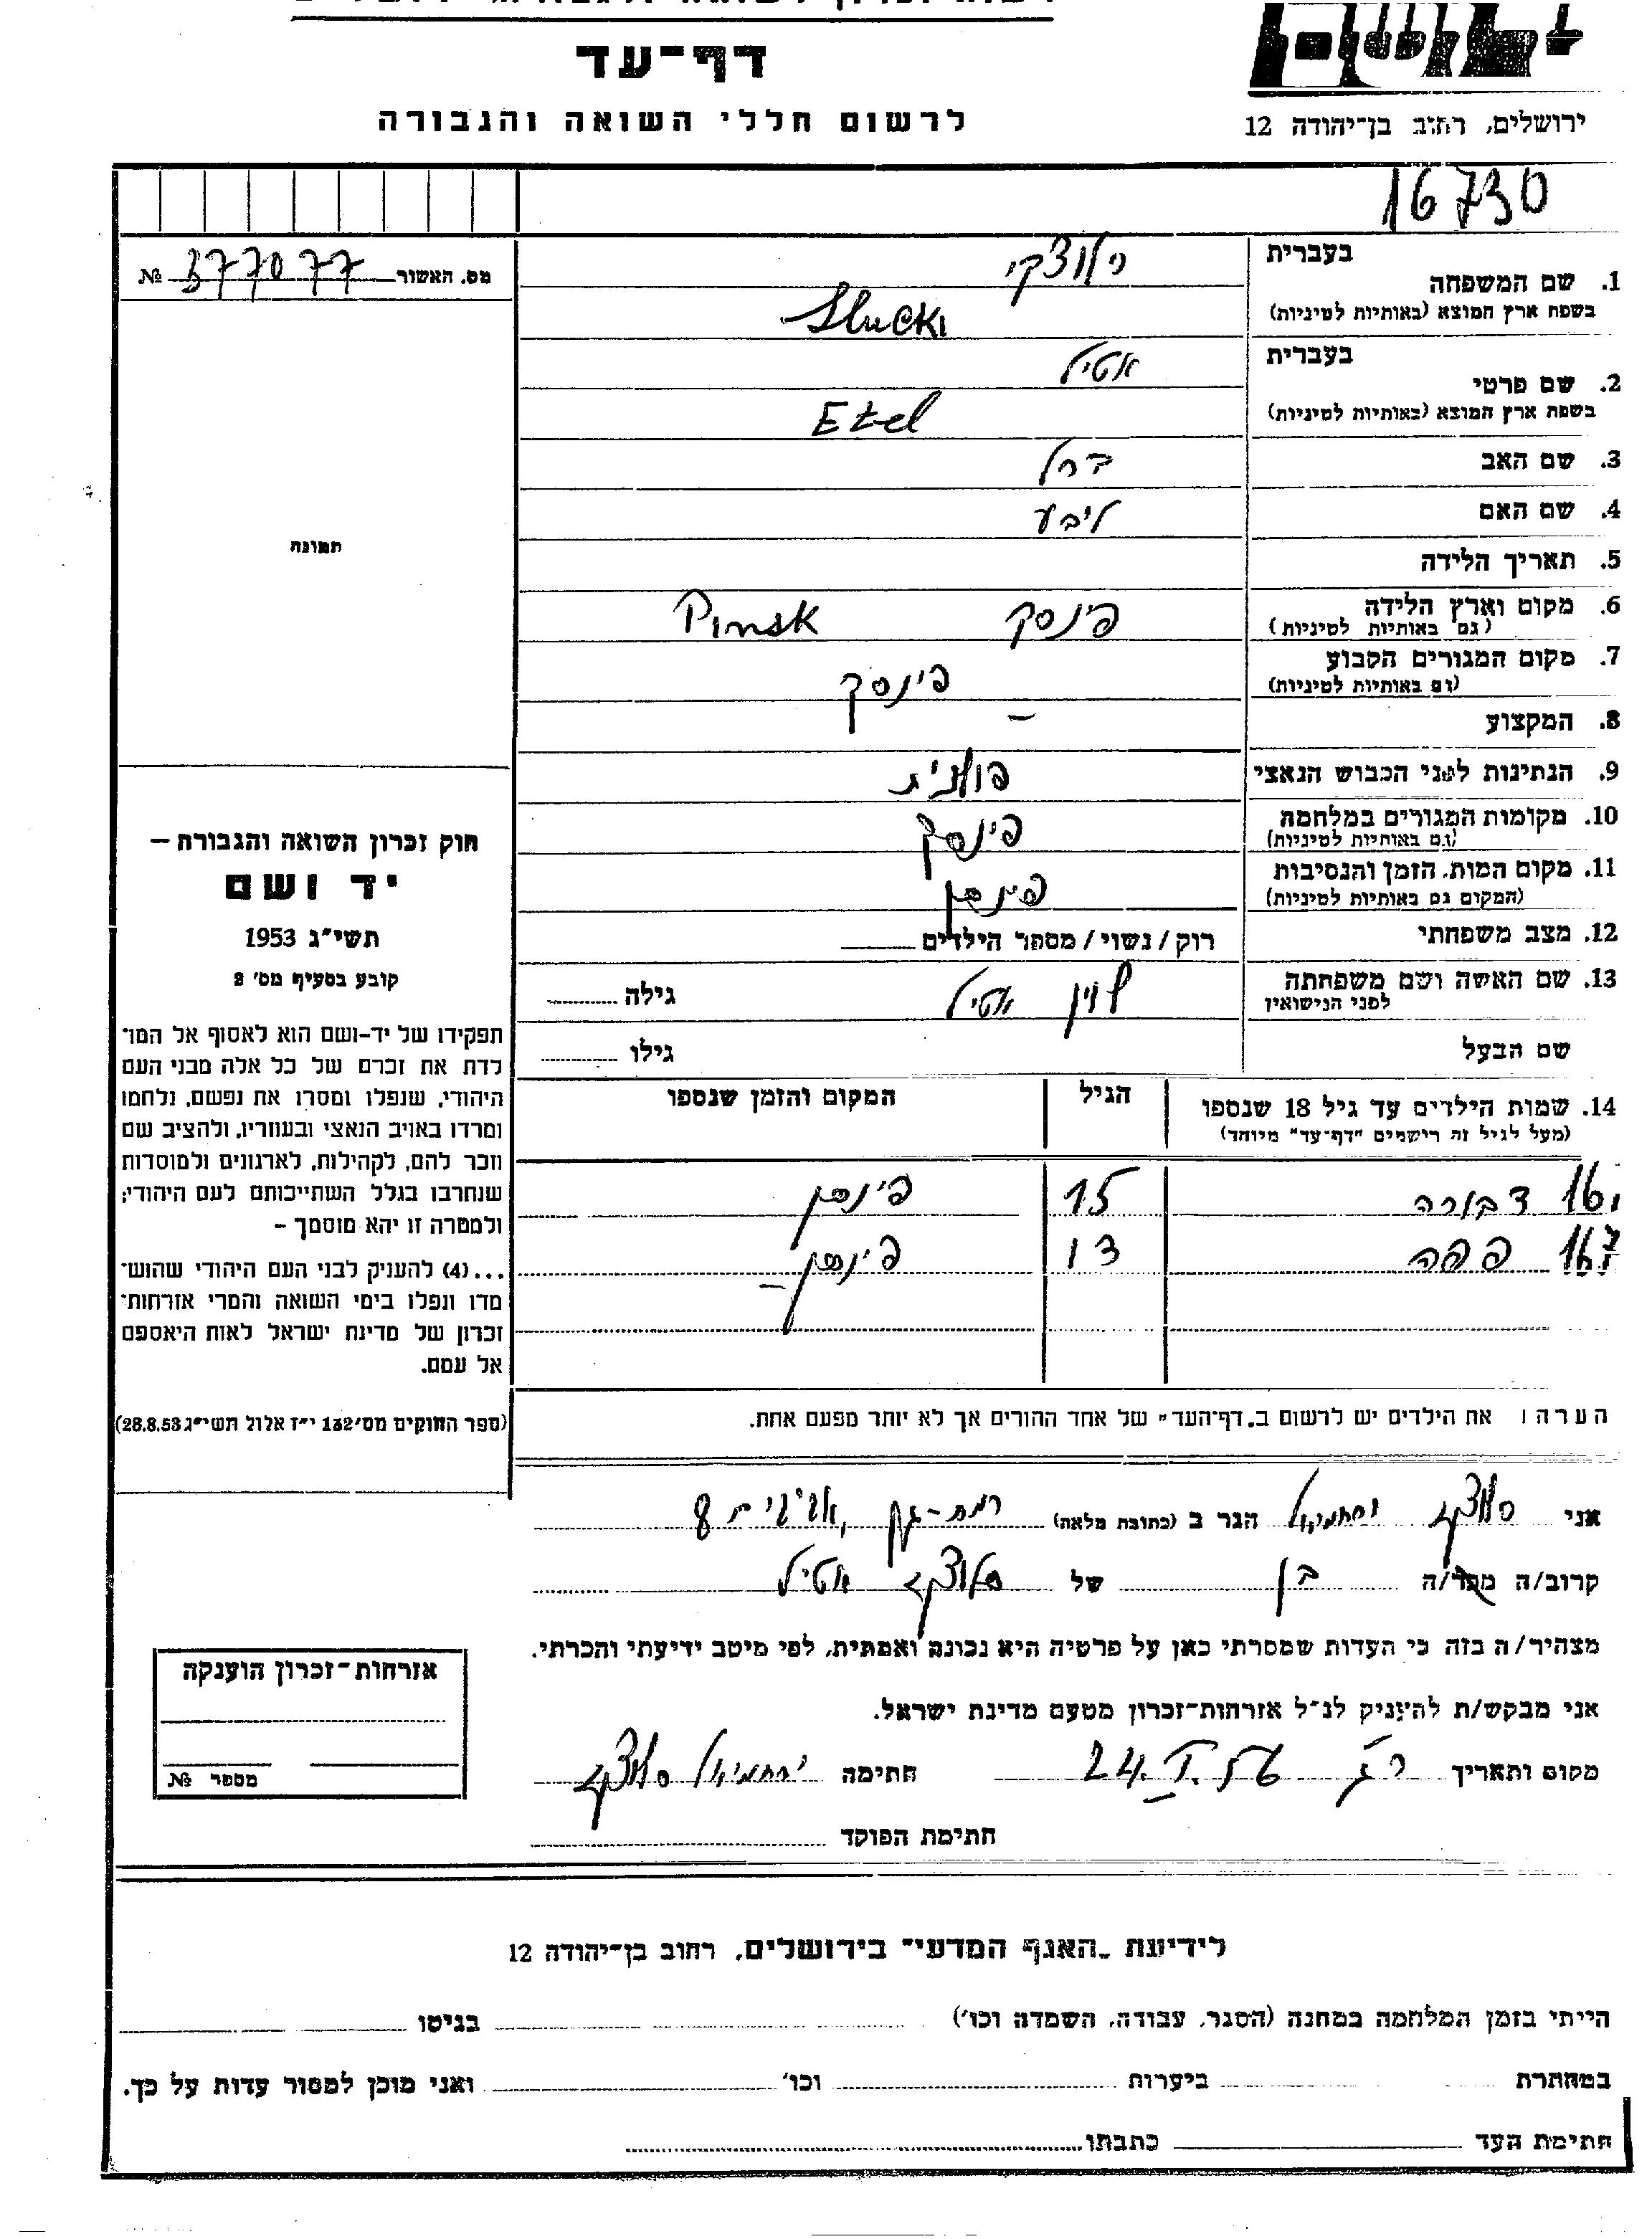 דף-עד
לרשום חללי השואה והגבורה
ירושלים, רחוב בן-יהודה 12
16730
מס. האשור 377077 №
בעברית
1. שם המשפחה
סלוצקי
בשפת ארץ המוצא (באותיות לטיניות) Slucki
בעברית
2. שם פרטי
אטיל
בשפת ארץ המוצא (באותיות לטיניות) Etel
3. שם האב ברל
4. שם האם ליבע
תמונה
5. תאריך הלידה
6. מקום וארץ הלידה פינסק Pinsk
(גם באותיות לטיניות)
7. מקום המגורים הקבוע פינסק
(גם באותיות לטיניות)
8. המקצוע –
9. הנתינות לפני הכבוש הנאצי פולנית
10. מקומות המגורים במלחמה פינסק
(גם באותיות לטיניות)
11. מקום המות, הזמן והנסיבות פינסק
(המקום גם באותיות לטיניות)
12. מצב משפחתי רוק / נשוי / מספר הילדים
13. שם האשה ושם משפחתה אטיל גילה
לפני הנישואין
שם הבעל גילו
14. שמות הילדים עד גיל 18 שנספו הגיל המקום והזמן שנספו
(מעל לגיל זה רישמים "דף-עד" מיוחד)
16 דבורה 15 פינסק
167 פסה 13 פינסק –
חוק זכרון השואה והגבורה –
יד ושם
תשי"ג 1953
קובע בסעיף מס' 2
תפקידו של יד-ושם הוא לאסוף אל המו-
לדת את זכרם של כל אלה מבני העם
היהודי, שנפלו ומסרו את נפשם, נלחמו
ומרדו באויב הנאצי ובעוזריו, ולהציב שם
וזכר להם, לקהילות, לארגונים ולמוסדות
שנחרבו בגלל השתייכותם לעם היהודי;
ולמטרה זו יהא מוסמך –
...(4) להעניק לבני העם היהודי שהוש-
מדו ונפלו בימי השואה והמרי אזרחות-
זכרון של מדינת ישראל לאות היאספם
אל עמם.
(ספר החוקים מס' 132 י"ז אלול תשי"ג 28.8.53)
הערה: את הילדים יש לרשום ב"דף-העד" של אחד ההורים אך לא יותר מפעם אחת.
אני סלוצקי ירחמיאל הגר ב (כתובת מלאה) רמת-גן, 8
קרוב/ה מכר/ה בן של סלוצקי אטיל
מצהיר/ה בזה כי העדות שמסרתי כאן על פרטיה היא נכונה ואמתית, לפי מיטב ידיעתי והכרתי.
אני מבקש/ת להעניק לנ"ל אזרחות-זכרון מטעם מדינת ישראל.
מקום ותאריך ר"ג 24.I.56 חתימה ירחמיאל סלוצקי
חתימת הפוקד
אזרחות-זכרון הוענקה
מספר №
לידיעת "האגף המדעי" בירושלים, רחוב בן-יהודה 12
הייתי בזמן המלחמה במחנה (הסגר, עבודה, השמדה וכו') בגיטו
במחתרת ביערות וכו' ואני מוכן למסור עדות על כך.
חתימת העד כתבתו